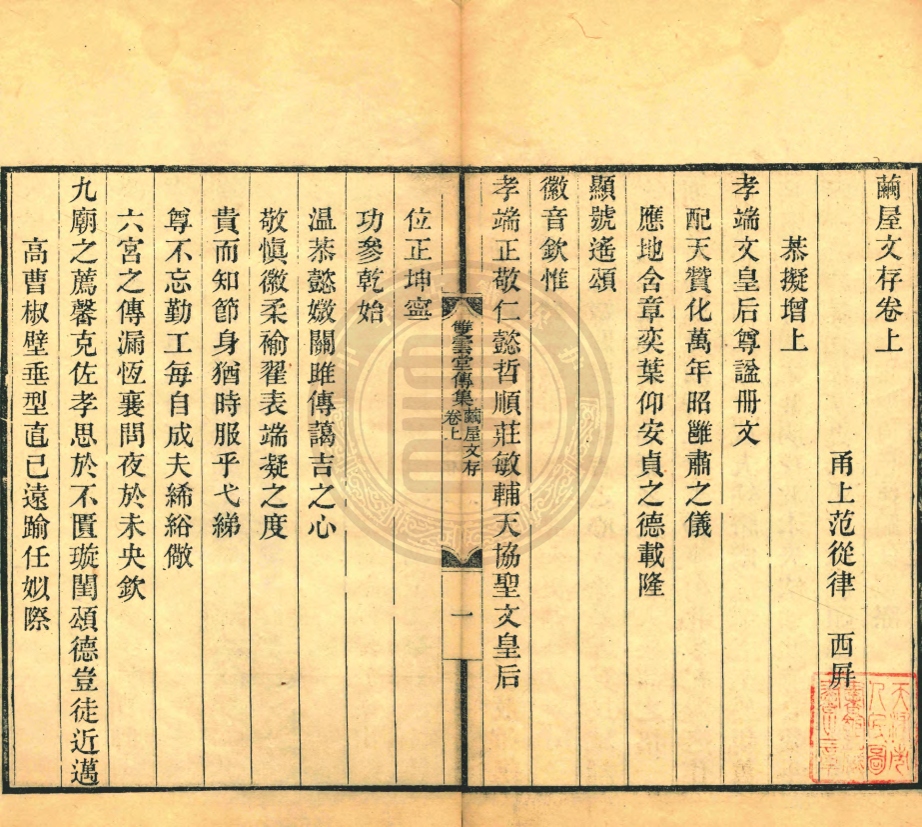 繭屋文存卷上
甬上范從律　西屛
恭擬增上
孝端文皇后尊諡冊文
配天贊化萬年昭雝肅之儀
應地含章奕葉仰安貞之德載隆
顯號遙頌
徽音欽惟
孝端正敬仁懿哲順莊敏輔天協聖文皇后
雙雲堂傳集
繭屋文存
卷上
一
位正坤寧
功參乾始
温恭懿媺關雎傳藹吉之心
敬愼徽柔褕翟表端凝之度
貴而知節身猶時服乎弋綈
尊不忘勤工每自成夫絺綌儆
六宮之傳漏恆襄問夜於未央欽
九廟之薦馨克佐孝思於不匱璇閨頌德豈徒近邁
高曹椒壁垂型直已遠踰任姒際